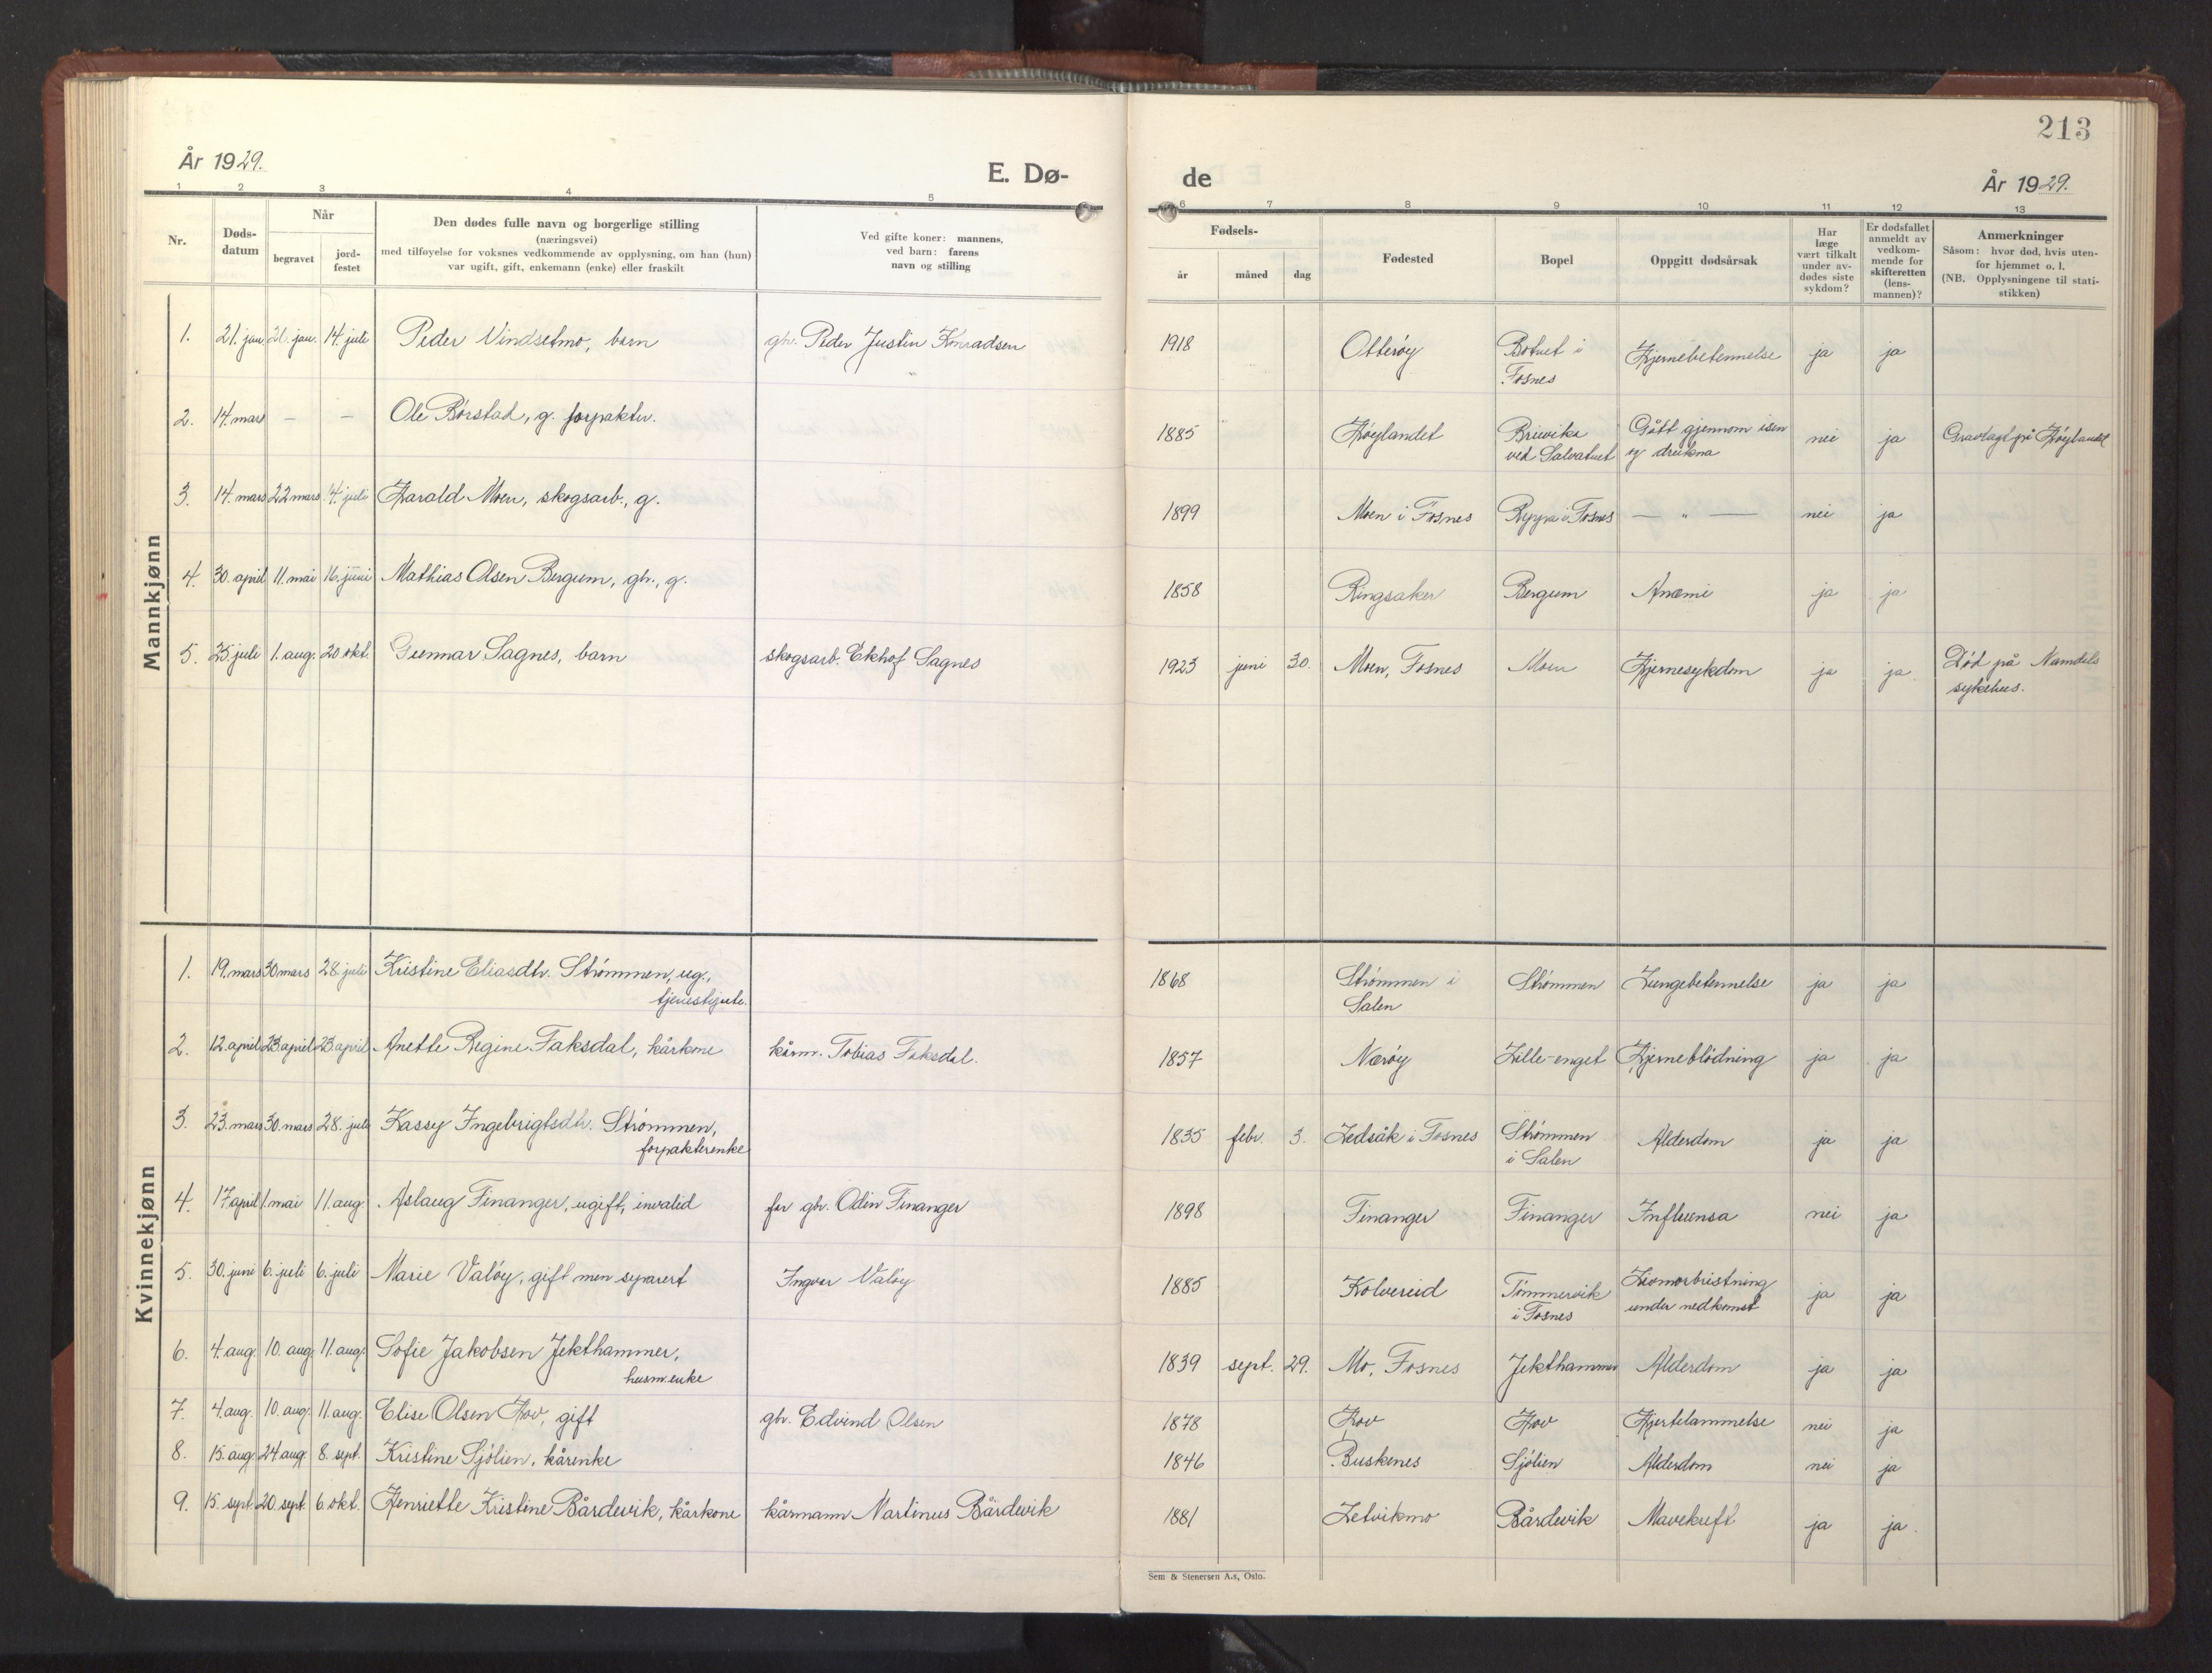 213
År 1929.
E. Dø-
de
År 1929.
1 2 3 4 5 6 7 8 9 10 11 12 13
Nr.
Døds-
datum
Når
begravet
jord-
festet
Den dødes fulle navn og borgerlige stilling
(næringsvei)
med tilføyelse for voksnes vedkommende av opplysning, om han (hun)
var ugift, gift, enkemann (enke) eller fraskilt
Ved gifte koner: mannens,
ved barn: farens
navn og stilling
Fødsels-
år måned dag
Fødested
Bopel
Oppgitt dødsårsak
Har
læge
vært tilkalt
under av-
dødes siste
sykdom?
Er dødsfallet
anmeldt av
vedkom-
mende for
skifteretten
(lens-
mannen)?
Anmerkninger
Såsom: hvor død, hvis uten-
for hjemmet o. l.
(NB. Opplysningene til stati-
stikken)
Mannkjønn
1. 21. jan. 21. jan. 14. juli Peder Vindsetmo, barn gbr. Peder Justin Konradsen 1918 Otterøy Botnet i Hjernebetennelse ja ja
Fosnes
2. 14. mars — — Ole Børstad, g. forpakter. 1885 Høylandet Breivika Gått gjennom isen nei ja Gravlagt på Høylandet
ved Salvatnet og drukna
3. 14. mars 22 mars 14. juli Harald Moen, skogsarb., g. 1899 Moen i Fosnes Røyra i Fosnes — " — nei ja
4. 30. april 11. mai 16. juni Mathias Olsen Bergum, gbr., g. 1858 Ringsaker Bergum Anæmi ja ja
5. 25. juli 1. aug. 20 okt. Gunnar Sagnes, barn skogsarb. Ekhof Sagnes 1923 juni 30. Moen, Fosnes Moen Hjernesykdom ja ja Død på Namdals
sykehus.
Kvinnekjønn
1. 19. mars 30 mars 28. juli Kristine Eliasdtr. Strømmen, ug., 1868 Strømmen i Strømmen Lungebetennelse ja ja
tjenestejente. Salen
2. 12. april 23. april 23. april Anette Regine Faksdal, kårkone kårm. Tobias Faksdal. 1857 Nærøy Lille-enget Hjerneblødning ja ja
3. 23. mars 30. mars 28. juli Kassy Ingebrigtsdtr. Strømmen, 1835 febr. 3. Ledsåk i Fosnes Strømmen Alderdom ja ja
forpakterenke i Salen
4. 17. april 1. mai 11. aug. Aslaug Finanger, ugift, invalid far gbr. Odin Finanger 1898 Finanger Finanger Influensa nei ja
5. 30. juni 6. juli 6. juli Marie Valøy, gift men separert Ingvar Valøy 1885 Kolvereid Tømmervik Livmorbristning ja ja
i Fosnes under nedkomst
6. 4. aug. 10. aug. 11. aug. Sofie Jakobsen Jekthammer, 1839 sept. 29. Mo, Fosnes Jekthammer Alderdom ja ja
husm.enke
7. 4. aug. 10. aug. 11. aug. Elise Olsen Hov, gift gbr. Edvind Olsen 1878 Hov Hov Hjertelammelse nei ja
8. 15. aug. 24 aug. 8. sept. Kristine Sjølien, kårenke 1846 Buskenes Sjølien Alderdom nei ja
9. 15. sept. 20. sept. 6. okt. Henriette Kristine Bårdevik, kårkone kårmann Martinus Bårdevik 1881 Letvikmo Bårdevik Mavekreft ja ja.
Sem & Stenersen A.s, Oslo.